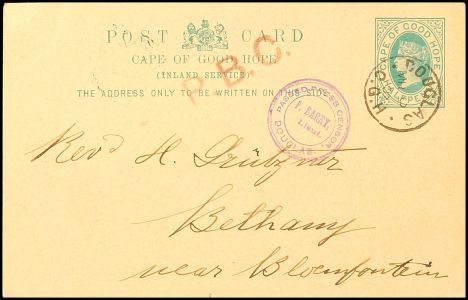 POST CARD
CAPE OF GOOD HOPE
(INLAND SERVICE)
THE ADDRESS ONLY TO BE WRITTEN ON THIS SIDE
P.B.C.
CAPE OF GOOD HOPE
HALFPENNY
DOUGLAS H.O.C.
PASSED PRESS CENSOR,
P. BARRY,
Lieut.
DOUGLAS.
Revd H. Grützner
Bethany
near Bloemfontein